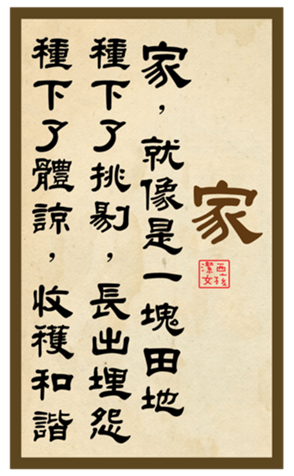 家
家，就像是一塊田地
種下了挑剔，長出埋怨
種下了體諒，收穫和諧